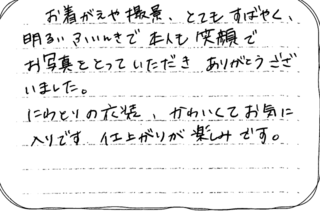 お着がえや撮景、とてもすばやく、
明るいふいんきで本人も笑顔で
お写真をとっていただき ありがとうござ
いました。
にわとりの衣装、かわいくてお気に
入りです 仕上がりが楽しみです。